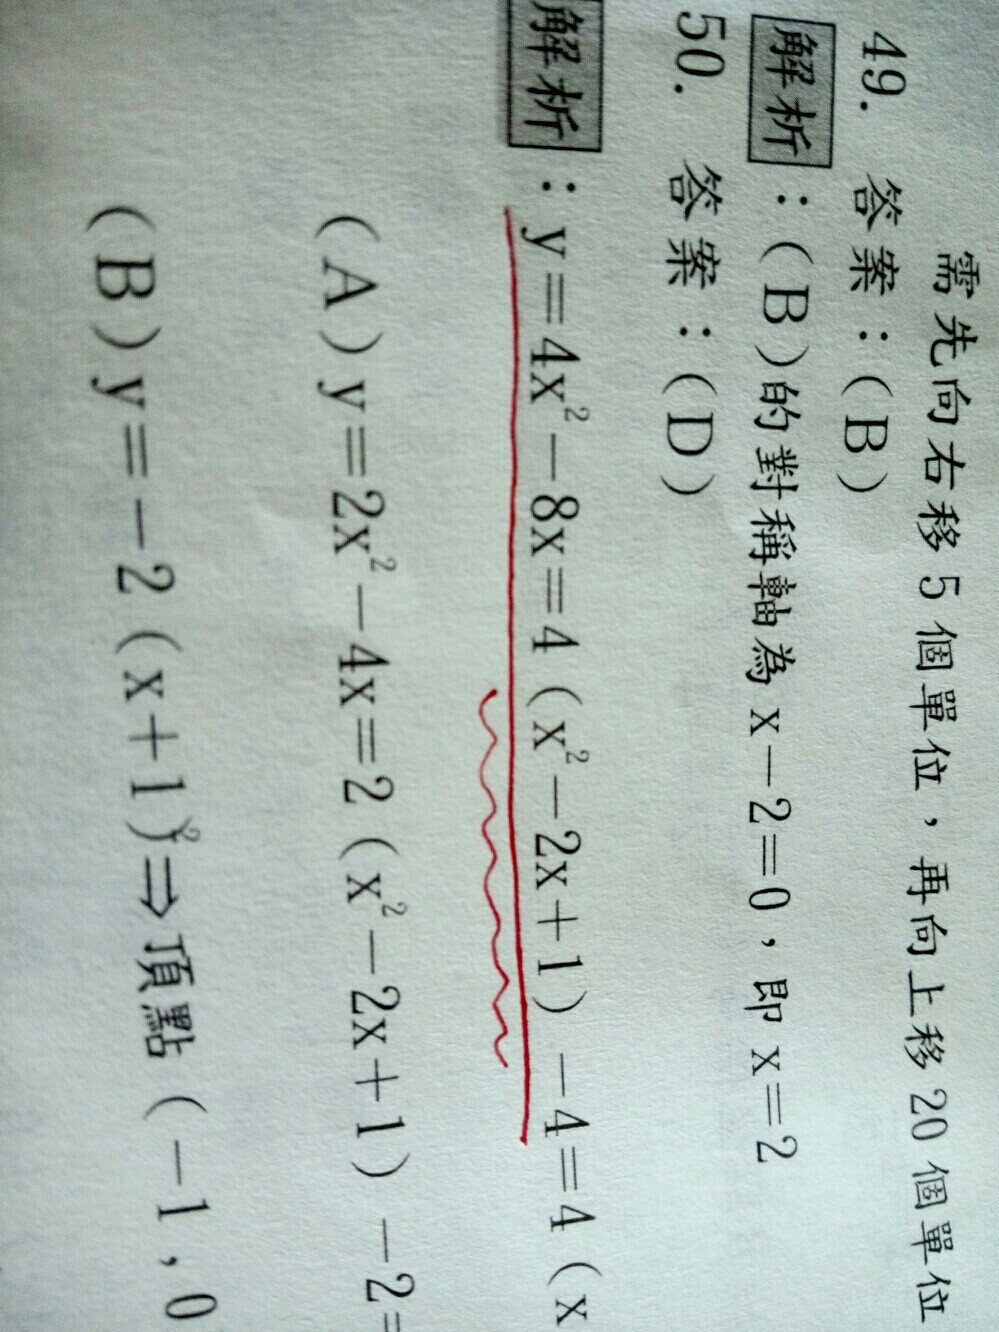 需先向右移5個單位，再向上移20個單位
49. 答案：(B)
解析：(B)的對稱軸為x－2＝0，即x＝2
50. 答案：(D)
解析：y＝4x²－8x＝4(x²－2x＋1)－4＝4(x
(A)y＝2x²－4x＝2(x²－2x＋1)－2＝
(B)y＝－2(x＋1)²⇒頂點(－1，0